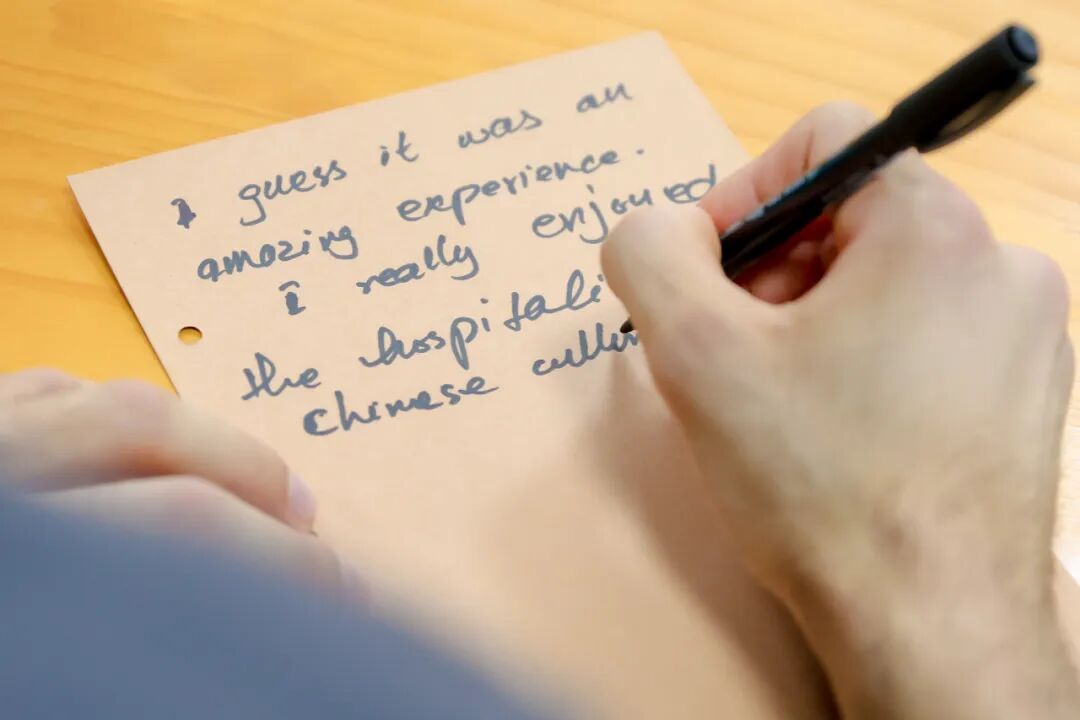 I guess it was an
amazing experience.
I really enjoyed
the hospitali
Chinese cultu